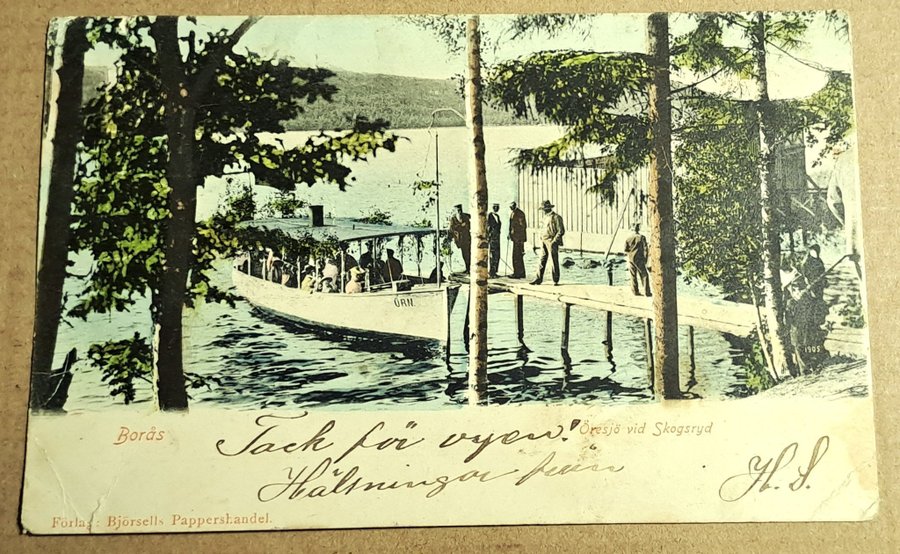 ÖRN.
1905
Borås
Öresjö vid Skogsryd
Tack för vyen!
Hälsningar från
H. S.
Förlag: Björsells Pappershandel.